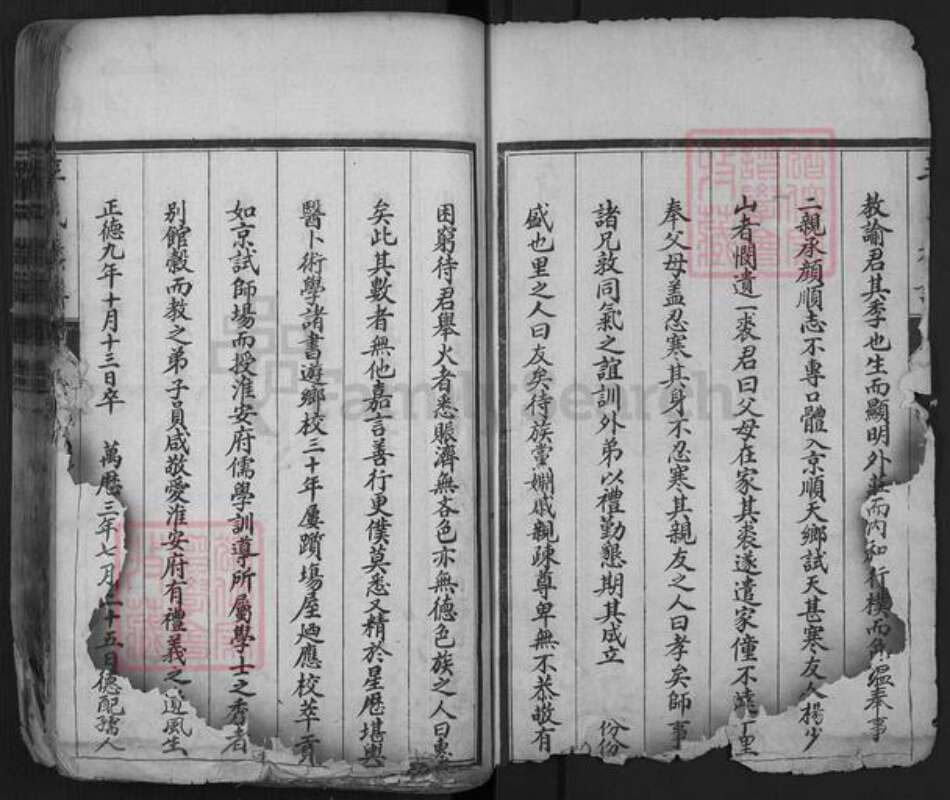 教諭君其季也生而顯明外莊而內和行樸而角溫奉事
二親承顏順志不專口體入京順天鄉試天甚寒友人楊少
山者憫遺一裘君曰父母在家其裘遂遣家僮不遠千里
奉父母盖忍寒其身不忍寒其親友之人曰孝矣師事
諸兄敦同氣之誼訓外弟以禮勤懇期其成立 份份
盛也里之人曰友矣待族黨姻戚親疎尊卑無不恭敬有
困窮待君舉火者悉賬濟無吝色亦無德色族之人曰惠
矣此其數者無他嘉言善行更僕莫悉又精於星曆堪輿
醫卜術學諸書遊鄉校三十年屢躓場屋廼應校萃貢
如京試師場而授淮安府儒學訓導所屬學士之秀者
別館穀而教之弟子員咸敬愛淮安府有禮義之道風生
正德九年十月十三日卒 萬曆三年七月二十五日德配孺人
FamilySearch